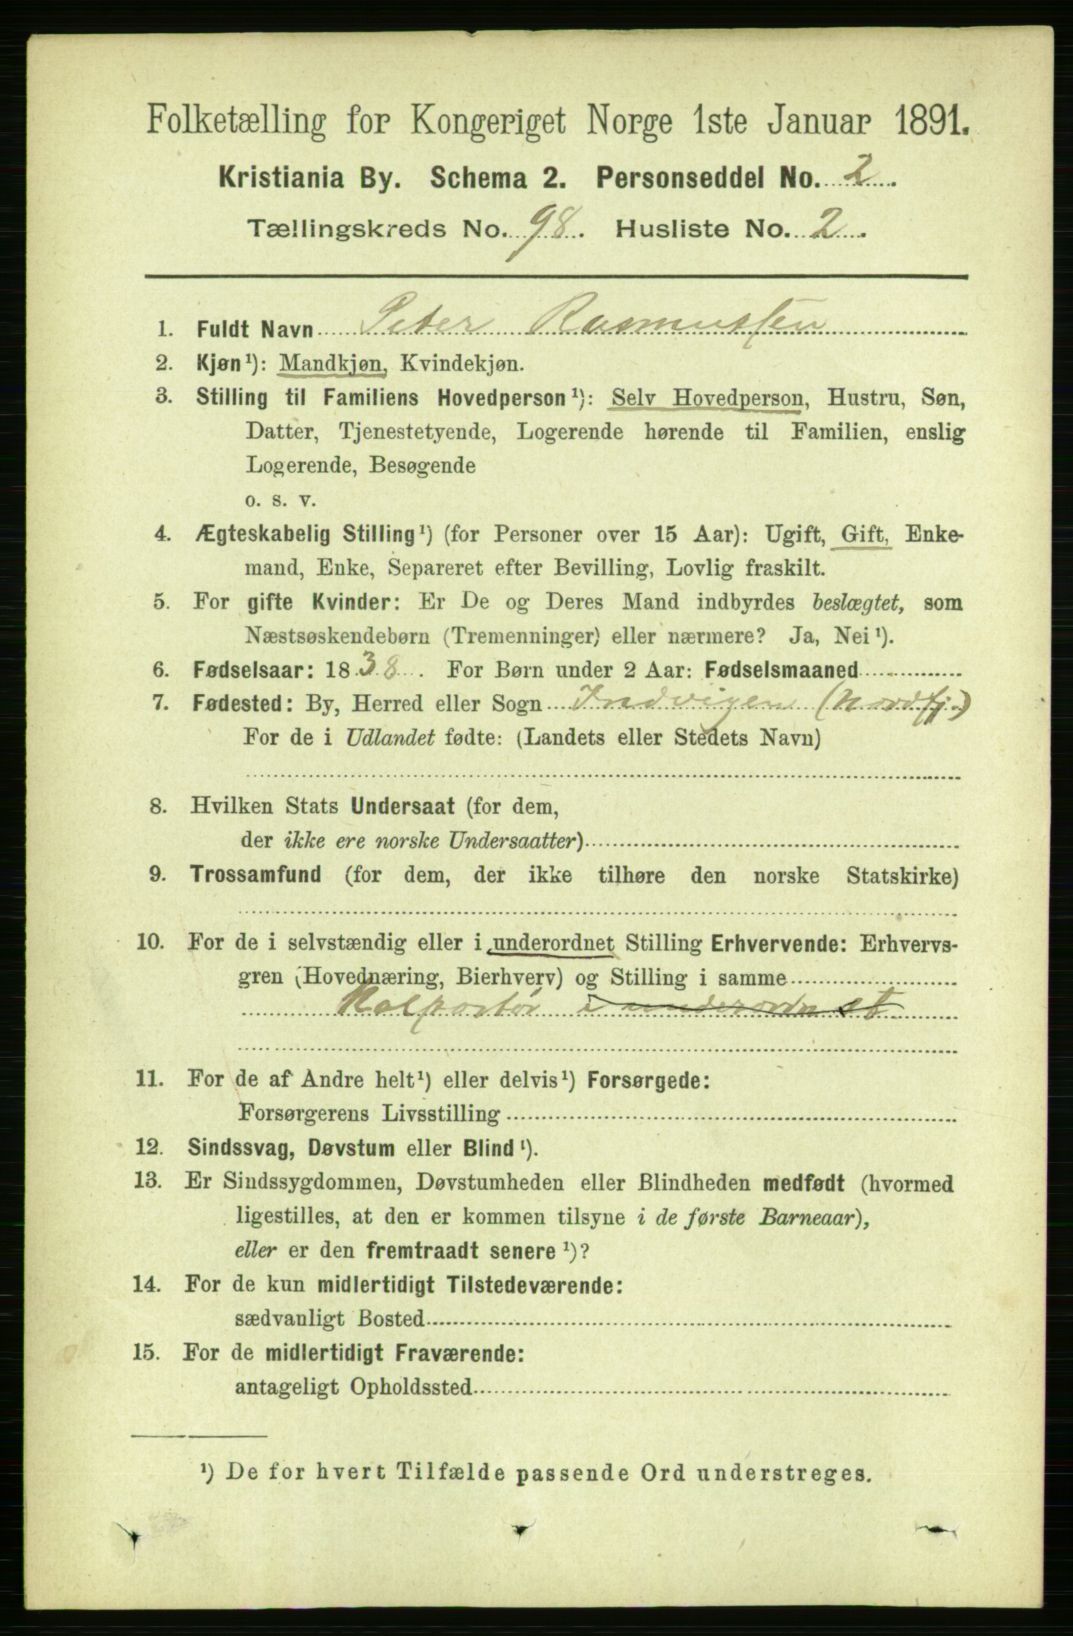 Folketælling for Kongeriget Norge 1ste Januar 1891.
Kristiania By. Schema 2. Personseddel No. 2.
Tællingskreds No. 98. Husliste No. 2.
1. Fuldt Navn Peter Rasmussen
2. Kjøn¹): Mandkjøn, Kvindekjøn.
3. Stilling til Familiens Hovedperson¹): Selv Hovedperson, Hustru, Søn,
Datter, Tjenestetyende, Logerende hørende til Familien, enslig
Logerende, Besøgende
o. s. v.
4. Ægteskabelig Stilling¹) (for Personer over 15 Aar): Ugift, Gift, Enke-
mand, Enke, Separeret efter Bevilling, Lovlig fraskilt.
5. For gifte Kvinder: Er De og Deres Mand indbyrdes beslægtet, som
Næstsøskendebørn (Tremenninger) eller nærmere? Ja, Nei¹).
6. Fødselsaar: 1838. For Børn under 2 Aar: Fødselsmaaned
7. Fødested: By, Herred eller Sogn Indvigen (Nordfj.)
For de i Udlandet fødte: (Landets eller Stedets Navn)
8. Hvilken Stats Undersaat (for dem,
der ikke ere norske Undersaatter)
9. Trossamfund (for dem, der ikke tilhøre den norske Statskirke)
10. For de i selvstændig eller i underordnet Stilling Erhvervende: Erhvervs-
gren (Hovednæring, Bierhverv) og Stilling i samme
Kolportør i underordnet
11. For de af Andre helt¹) eller delvis¹) Forsørgede:
Forsørgerens Livsstilling
12. Sindssvag, Døvstum eller Blind¹).
13. Er Sindssygdommen, Døvstumheden eller Blindheden medfødt (hvormed
ligestilles, at den er kommen tilsyne i de første Barneaar),
eller er den fremtraadt senere¹)?
14. For de kun midlertidigt Tilstedeværende:
sædvanligt Bosted
15. For de midlertidigt Fraværende:
antageligt Opholdssted
¹) De for hvert Tilfælde passende Ord understreges.